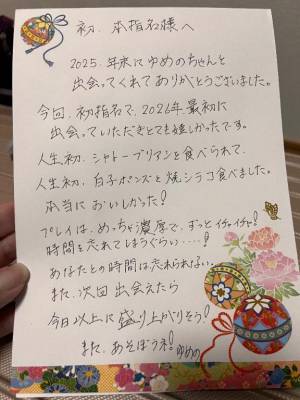 初. 本指名様へ
2025. 年末にゆめのちゃんと
出会ってくれてありがとうございました。
今回、初指名で、2026年最初に
出会っていただきとても嬉しかったです。
人生初. シャトーブリアンを食べられて、
人生初. 白子ポンズと焼シラコ食べました。
本当においしかった!
プレイは、めっちゃ濃厚で、ずっとイチャイチャ!
時間を忘れてしまうぐらい····!
あなたとの時間は忘れられない。
また、次回出会えたら
今日以上に盛り上がりそう!
また、あそぼうネ! ゆめの